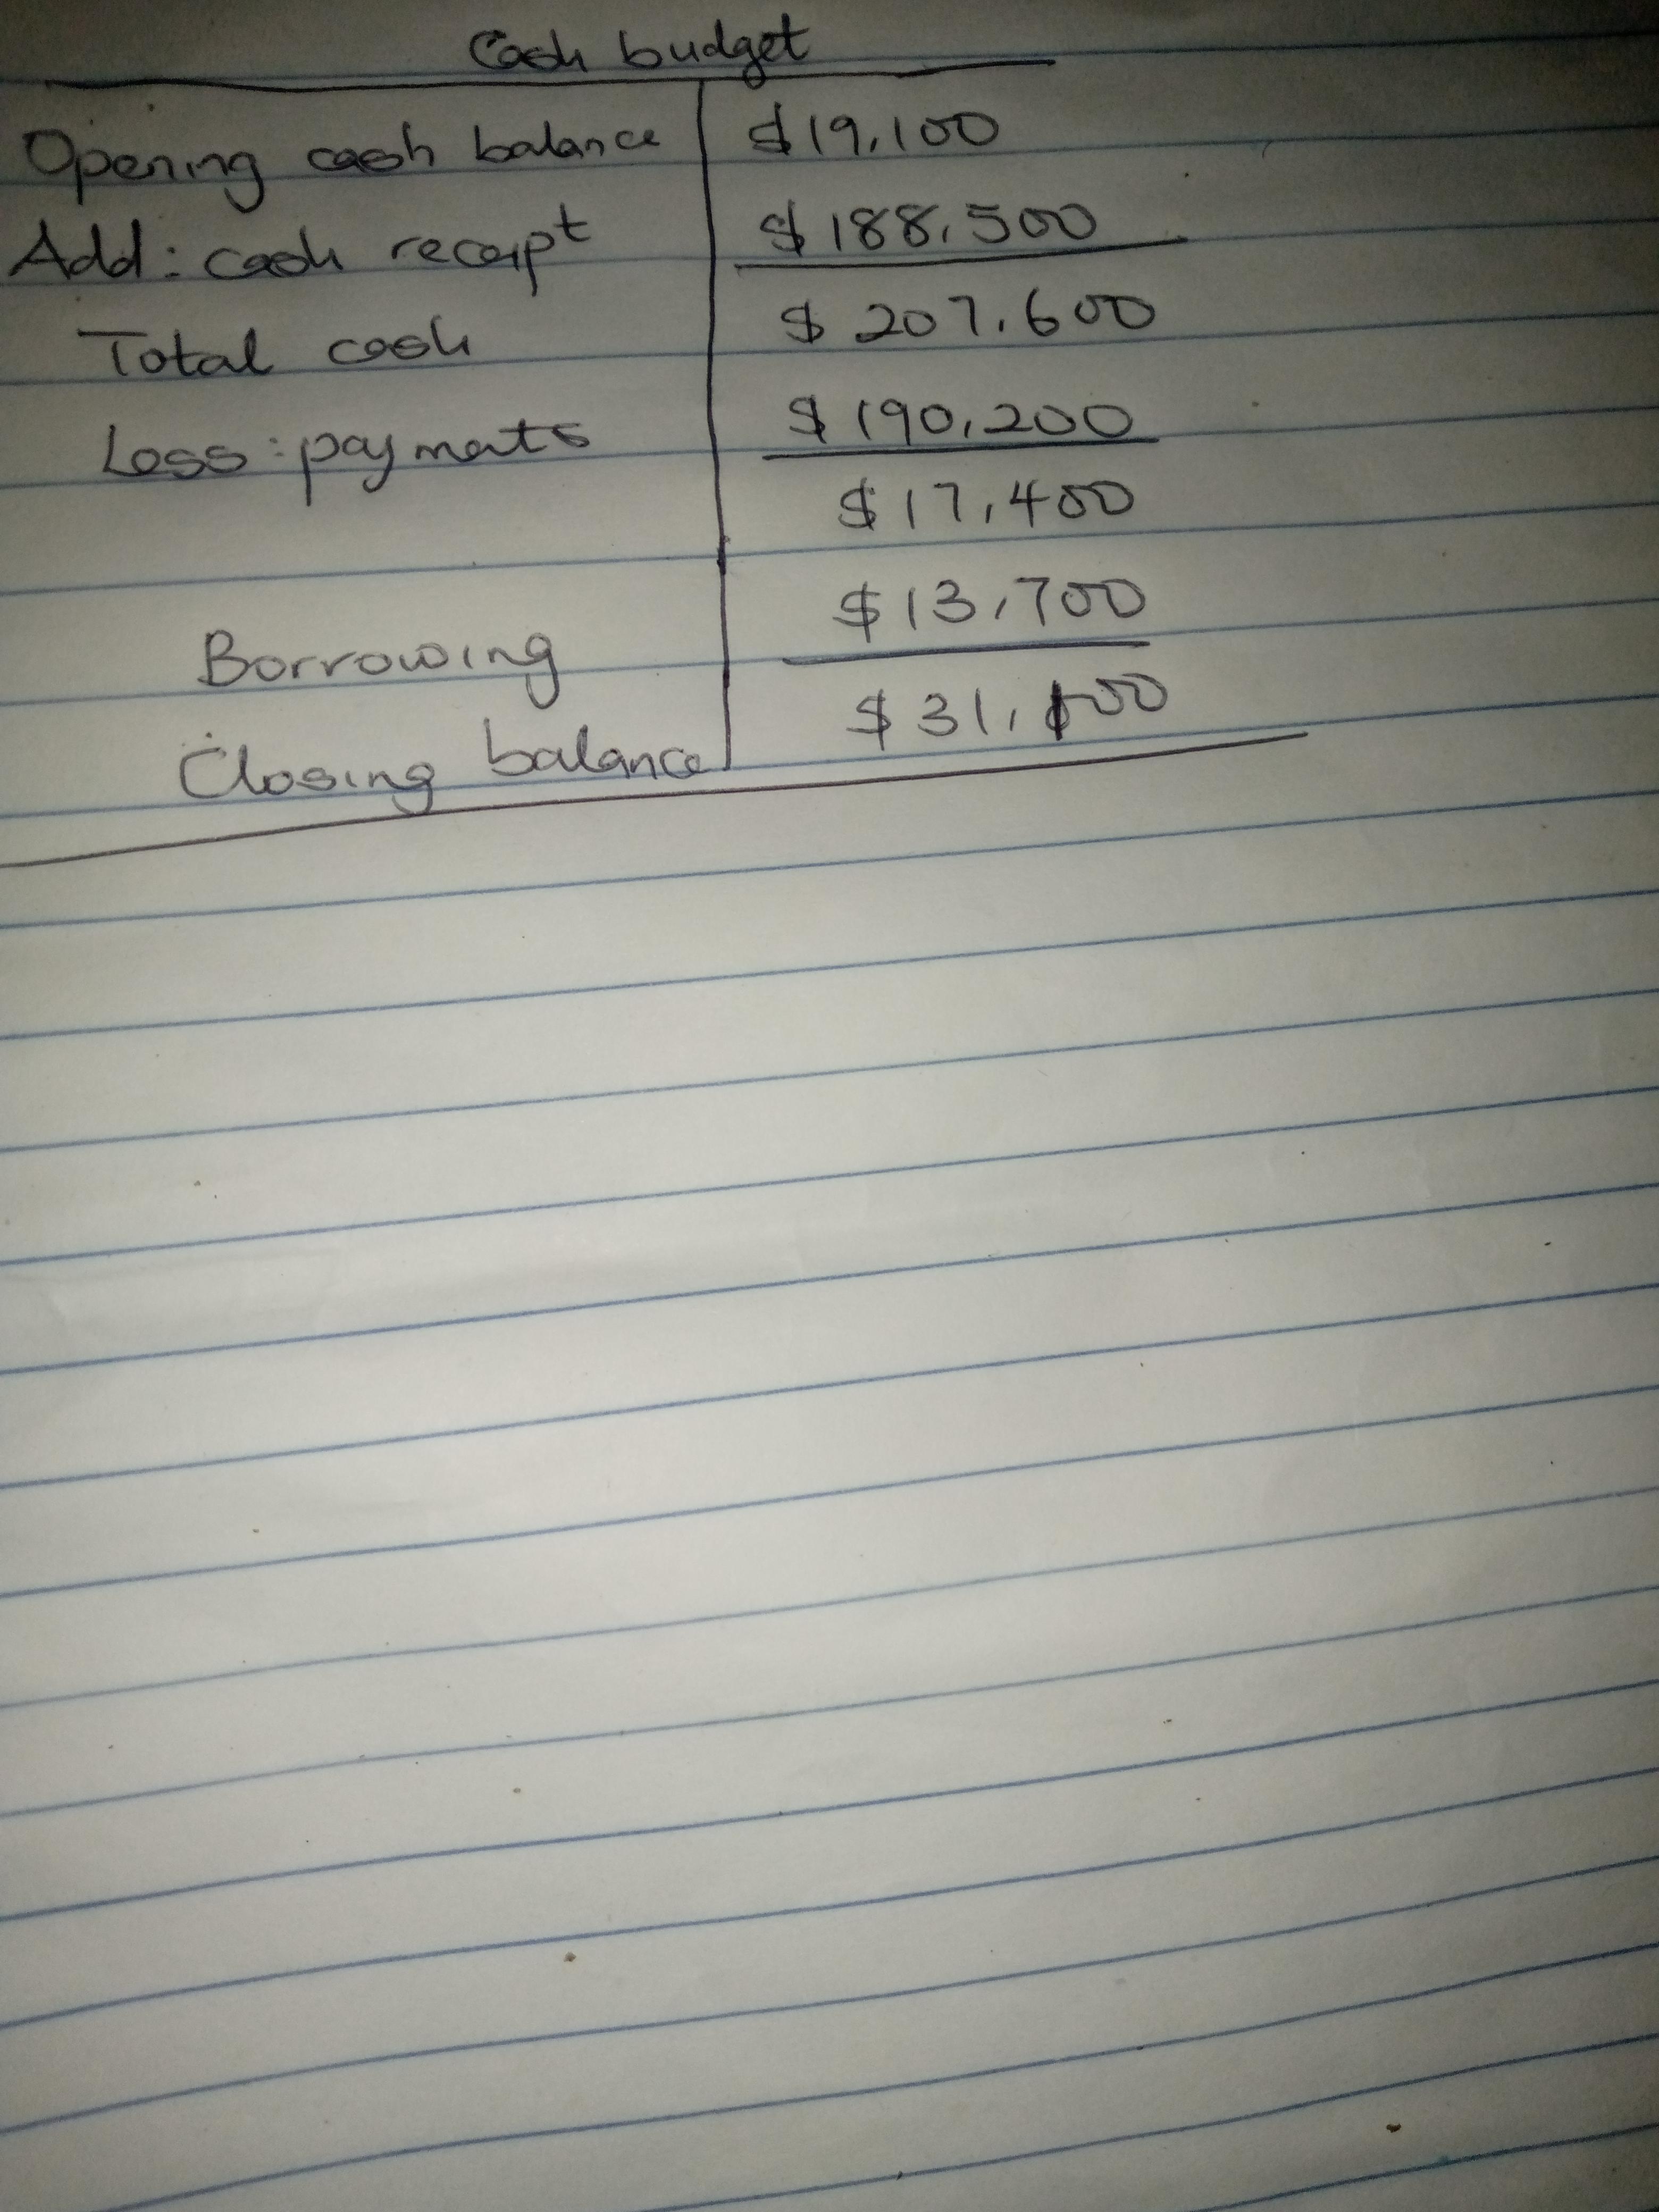 Cash budget
Opening cash balance $19,100
Add: cash receipt $188,500
Total cash $207,600
Less: payments $190,200
$17,400
Borrowing $13,700
Closing balance $31,100